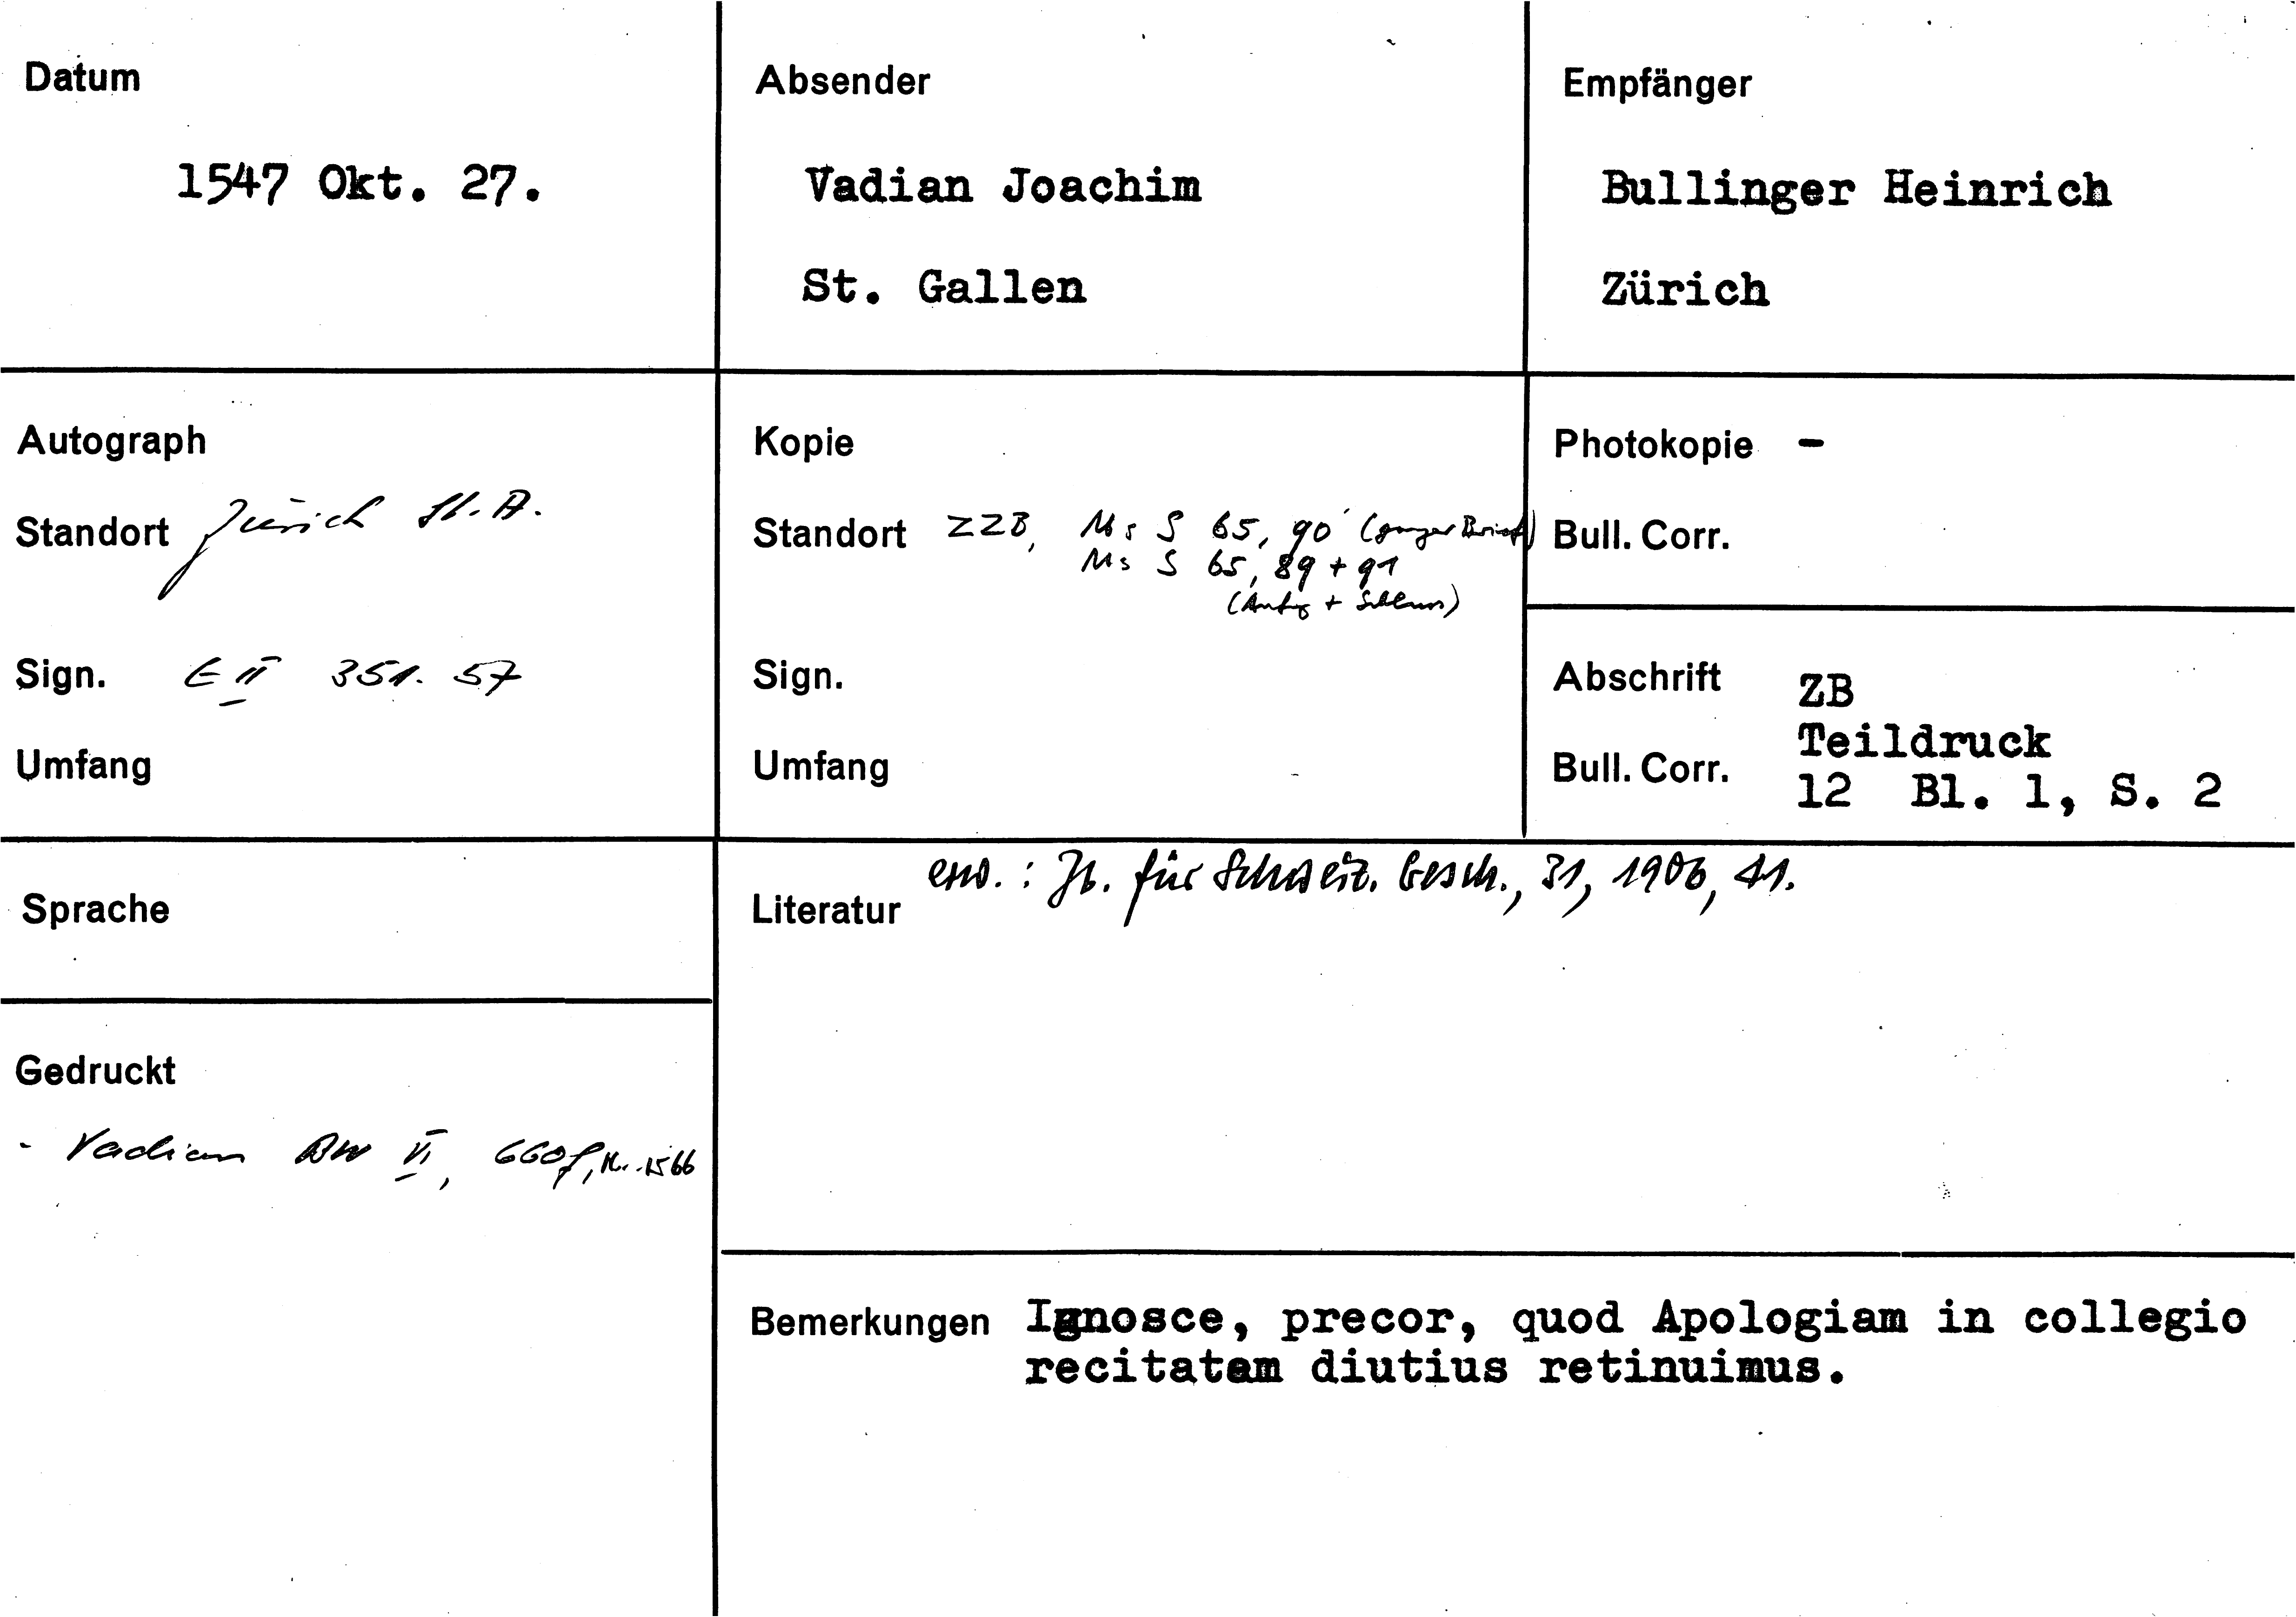 Datum
1547 Okt. 27.
Absender
Vadian Joachim
St. Gallen
Empfänger
Bullinger Heinrich
Zürich
Autograph
Standort Zürich St. A.
Sign. E II 351. 57
Umfang
Kopie
Standort ZZB, Ms S 65, 90 (ganzer Brief)
Ms S 65, 89 + 91
(Anfg + Schluss)
Sign.
Umfang
Photokopie -
Bull. Corr.
Abschrift ZB
Teildruck
Bull. Corr. 12 Bl. 1, S. 2
Sprache
Gedruckt
- Vadian BW VI, 660f, Nr. 1566
Literatur erw.: Jb. für Schweiz. Gesch., 31, 1906, 41.
Bemerkungen Ignosce, precor, quod Apologiam in collegio
recitatam diutius retinuimus.